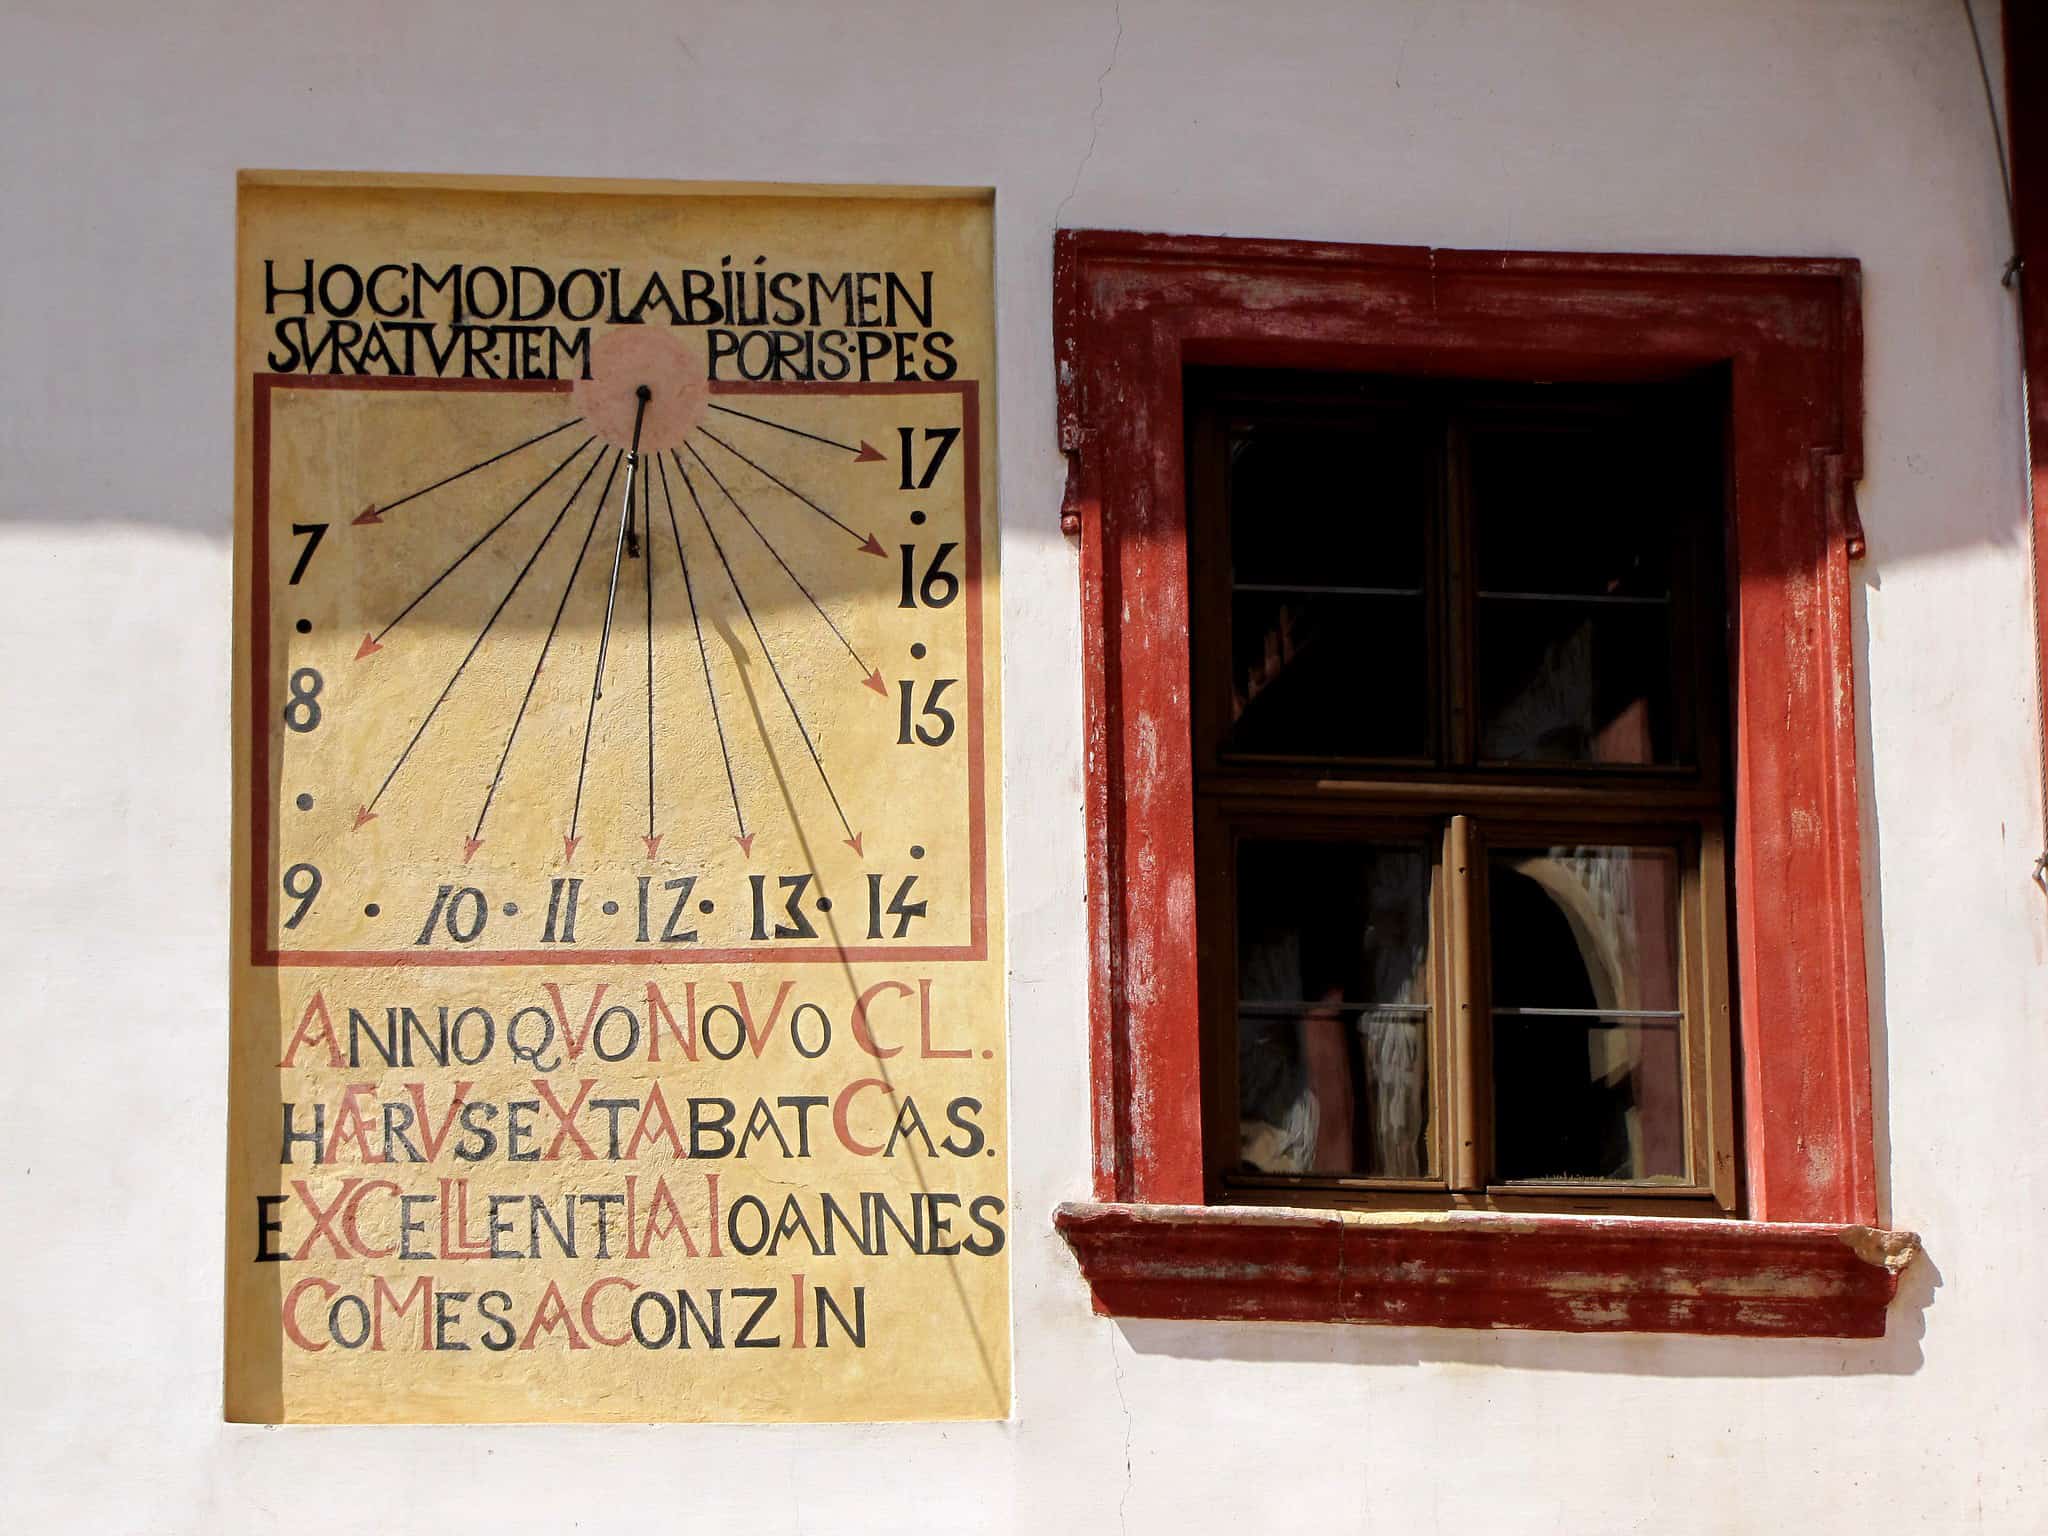 HOCMODO·LABILISMEN
SVRATVR·TEM PORIS·PES
17
7
16
8
15
9 · 10 · 11 · 12 · 13 · 14
ANNO QVO NOVO CL.
HÆRVS EXTABAT CAS.
EXCELLENTIA IOANNES
COMES A CONZIN